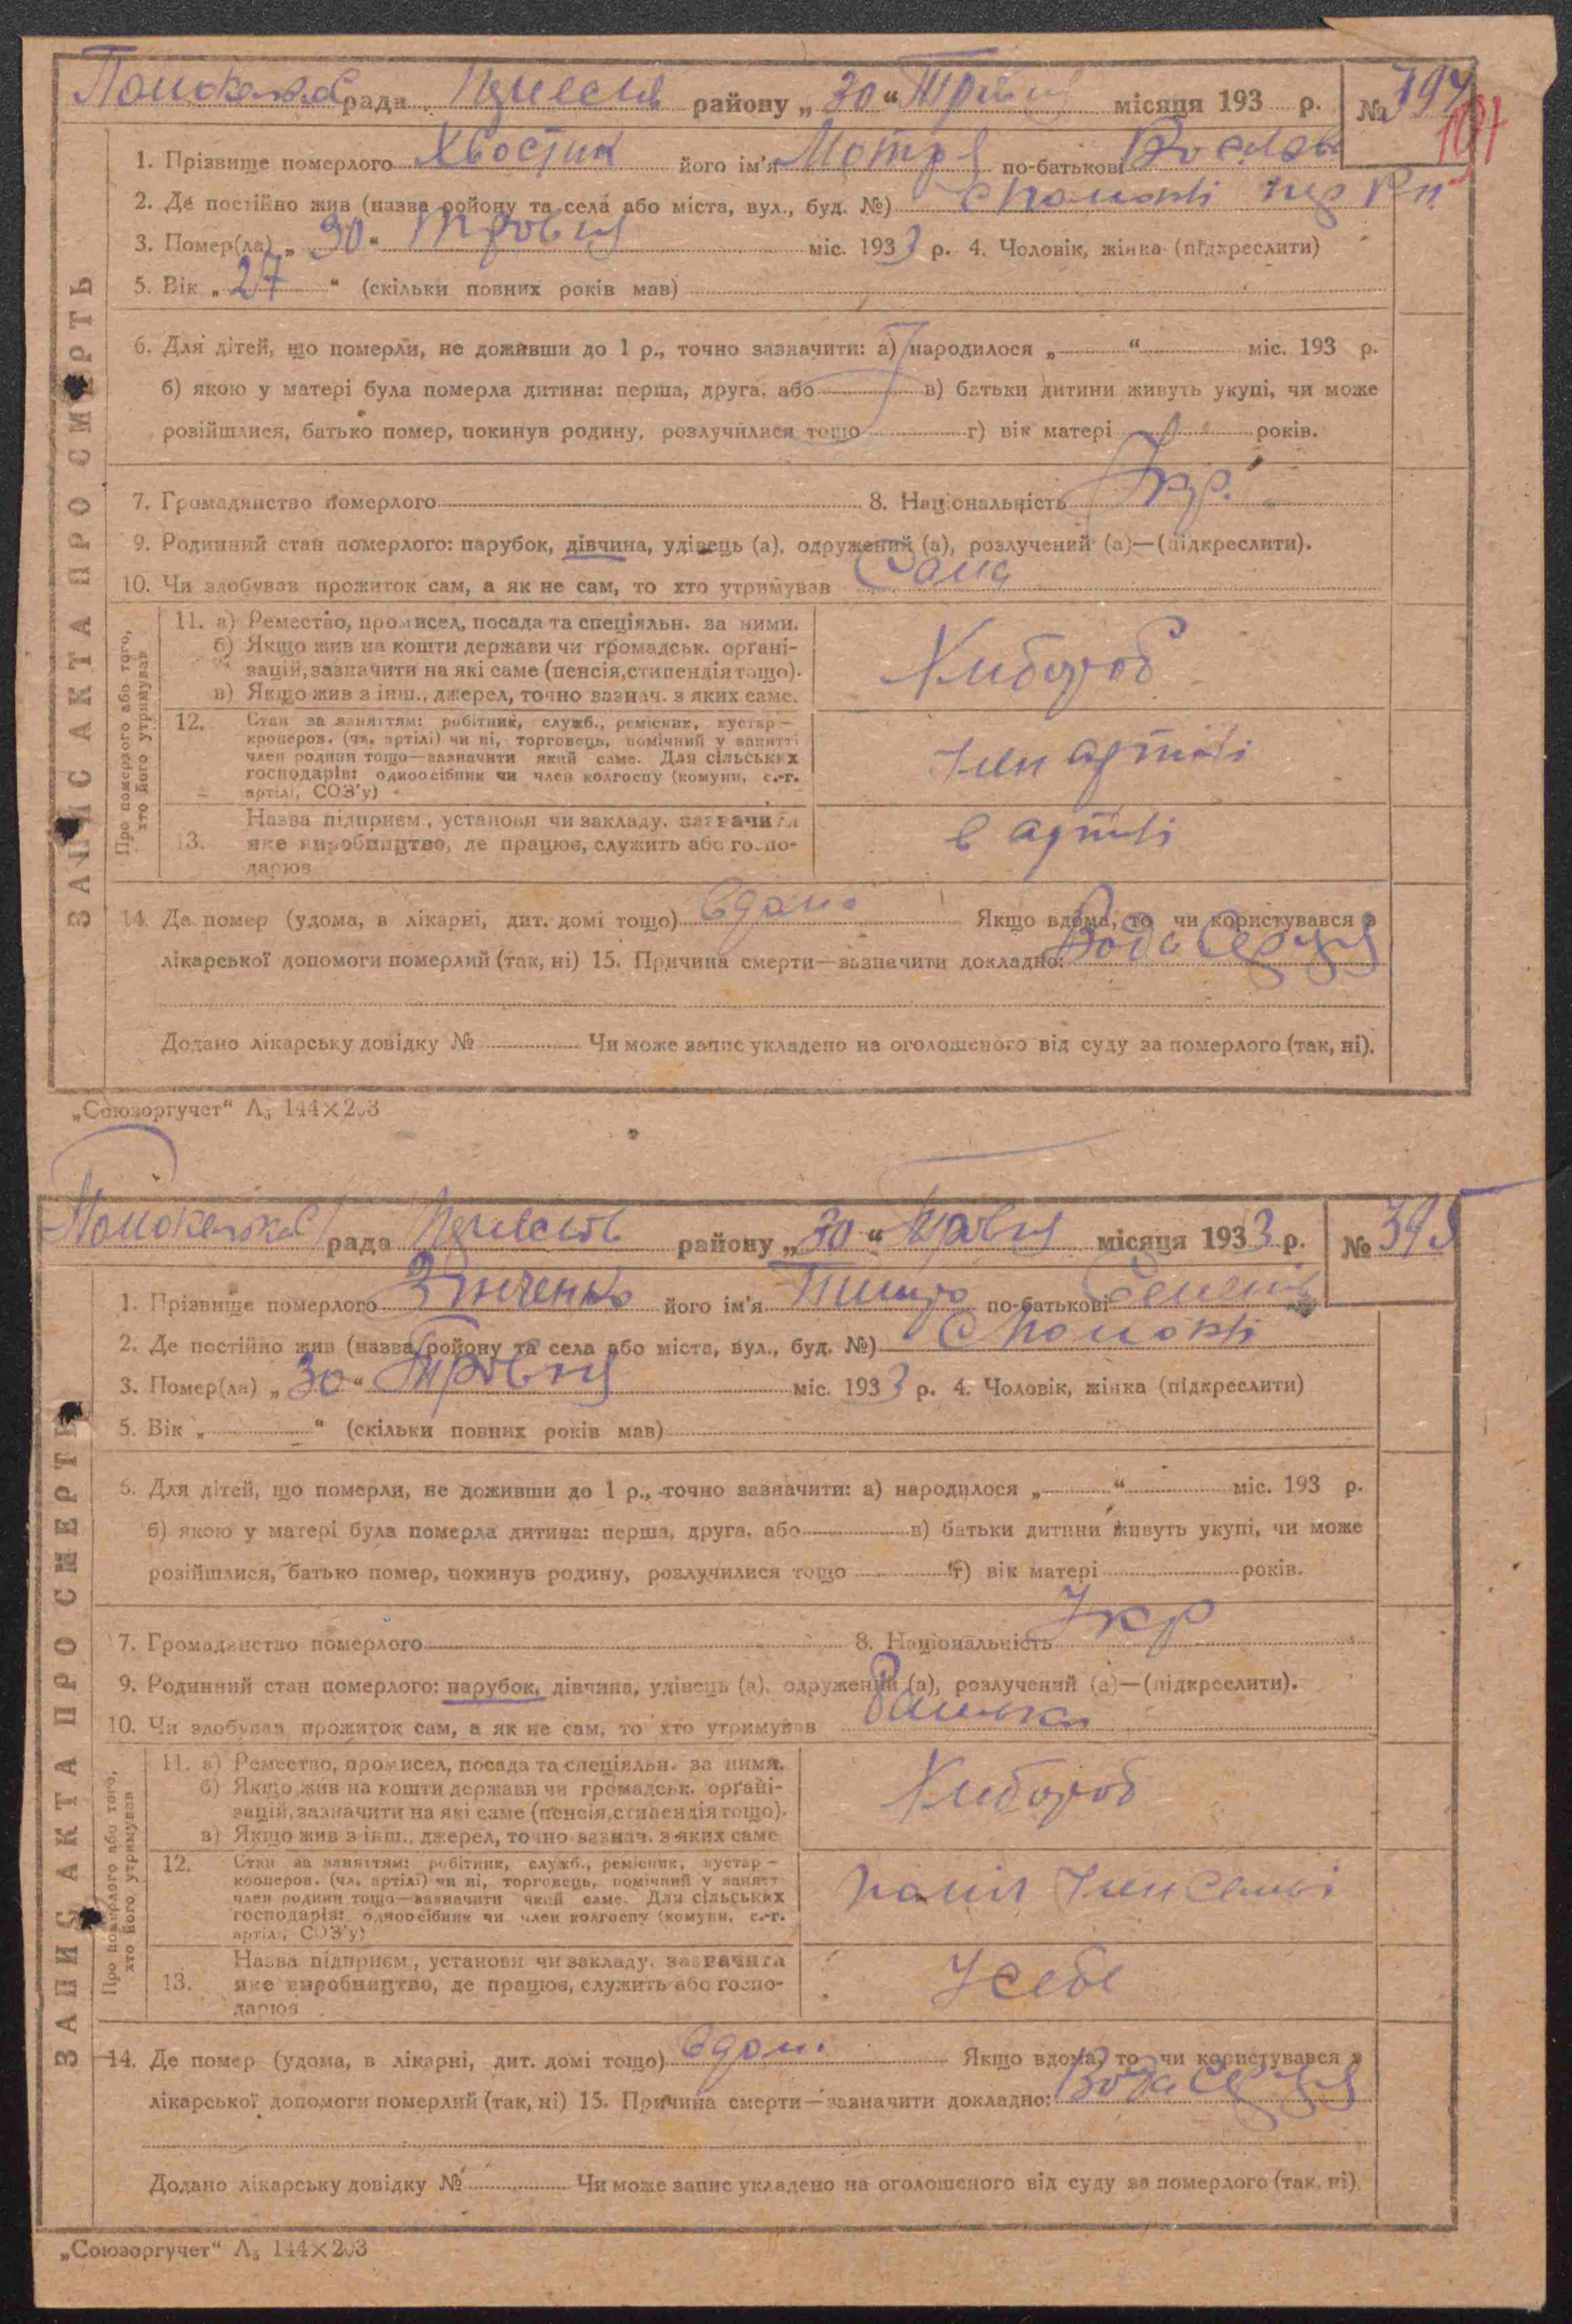 рада району „30“ місяця 193 р. № 394
197
1. Прізвище померлого Хвостик його ім'я Мотря по-батькові
2. Де постійно жив (назва району та села або міста, вул., буд. №)
3. Помер(ла) „30“ Травня міс. 1933 р. 4. Чоловік, жінка (підкреслити)
5. Вік „27“ (скільки повних років мав)
6. Для дітей, що померли, не доживши до 1 р., точно зазначити: а) народилося „ “ міс. 193 р.
б) якою у матері була померла дитина: перша, друга, або в) батьки дитини живуть укупі, чи може
розійшлися, батько помер, покинув родину, розлучилися тощо г) вік матері років.
7. Громадянство померлого 8. Національність Укр.
9. Родинний стан померлого: парубок, дівчина, удівець (а), одружений (а), розлучений (а)—(підкреслити).
10. Чи здобував прожиток сам, а як не сам, то хто утримував Сама
ЗАПИС АКТА ПРО СМЕРТЬ
Про померлого або того,
хто його утримував
11. а) Ремество, промисел, посада та спеціяльн. за ними.
б) Якщо жив на кошти держави чи громадськ. організацій, зазначити на які саме (пенсія, стипендія тощо).
в) Якщо жив з інш., джерел, точно зазнач. з яких саме.
Хлібороб
12. Стан за заняттям: робітник, служб., ремісник, кустар—
кооперов. (чл. артілі) чи ні, торговець, помічний у занятті
член родини тощо—зазначити який саме. Для сільських
господарів: одноосібник чи член колгоспу (комуни, с.-г.
артілі, СОЗ'у)
Член артілі
13. Назва підприєм., установи чи закладу, зазначити
яке виробництво, де працює, служить або господарює
в артілі
14. Де помер (удома, в лікарні, дит. домі тощо) вдома Якщо вдома, то чи користувався з
лікарської допомоги померлий (так, ні) 15. Причина смерти—зазначити докладно:
Додано лікарську довідку № Чи може запис укладено на оголошеного від суду за померлого (так, ні).
„Союзоргучет“ А₅ 144×203
рада району „30“ Травня місяця 1933 р. № 395
1. Прізвище померлого Зінченко його ім'я по-батькові
2. Де постійно жив (назва району та села або міста, вул., буд. №)
3. Помер(ла) „30“ Травня міс. 1933 р. 4. Чоловік, жінка (підкреслити)
5. Вік „ “ (скільки повних років мав)
6. Для дітей, що померли, не доживши до 1 р., точно зазначити: а) народилося „ “ міс. 193 р.
б) якою у матері була померла дитина: перша, друга, або в) батьки дитини живуть укупі, чи може
розійшлися, батько помер, покинув родину, розлучилися тощо г) вік матері років.
7. Громадянство померлого 8. Національність Укр
9. Родинний стан померлого: парубок, дівчина, удівець (а), одружений (а), розлучений (а)—(підкреслити).
10. Чи здобував прожиток сам, а як не сам, то хто утримував
ЗАПИС АКТА ПРО СМЕРТЬ
Про померлого або того,
хто його утримував
11. а) Ремество, промисел, посада та спеціяльн. за ними.
б) Якщо жив на кошти держави чи громадськ. організацій, зазначити на які саме (пенсія, стипендія тощо).
в) Якщо жив з інш., джерел, точно зазнач. з яких саме
Хлібороб
12. Стан за заняттям: робітник, служб., ремісник, кустар—
кооперов. (чл. артілі) чи ні, торговець, помічний у занятті
член родини тощо—зазначити який саме. Для сільських
господарів: одноосібник чи член колгоспу (комуни, с.-г.
артілі, СОЗ'у)
член
13. Назва підприєм., установи чи закладу, зазначити
яке виробництво, де працює, служить або господарює
У себе
14. Де помер (удома, в лікарні, дит. домі тощо) вдома Якщо вдома, то чи користувався з
лікарської допомоги померлий (так, ні) 15. Причина смерти—зазначити докладно:
Додано лікарську довідку № Чи може запис укладено на оголошеного від суду за померлого (так, ні).
„Союзоргучет“ А₅ 144×203